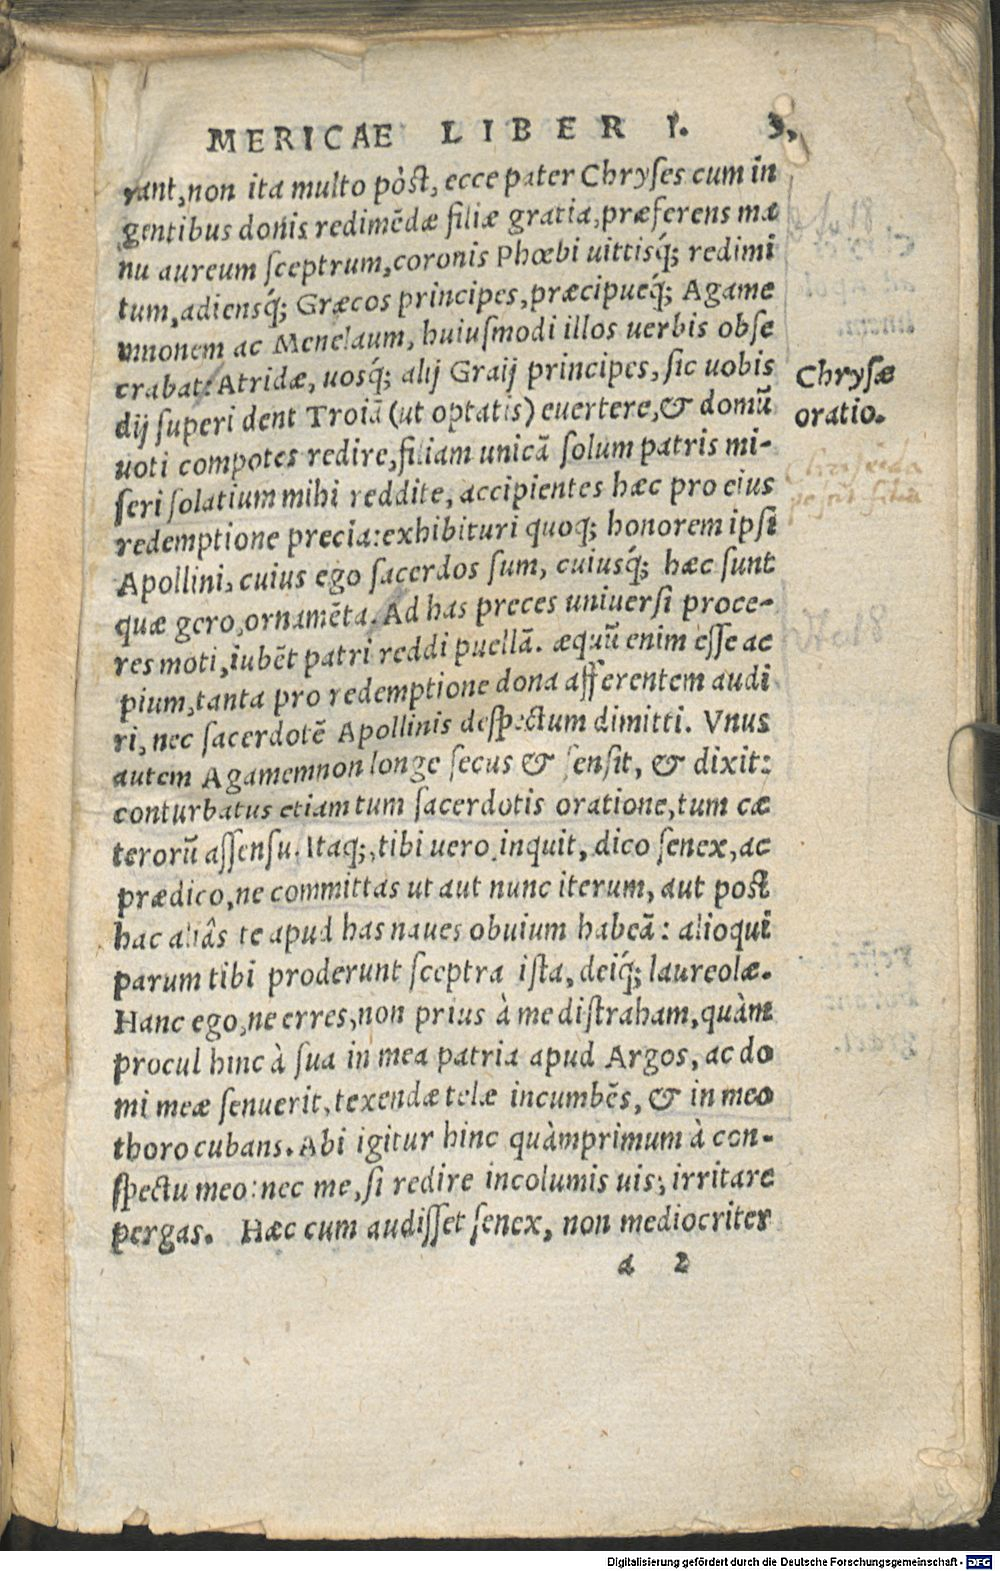 MERICAE LIBER I. 3.
rant, non ita multo pòst, ecce pater Chryses cum in
gentibus donis redimẽdæ filiæ gratia, præferens ma
nu aureum sceptrum, coronis Phœbi uittisq́; redimi
tum, adiensq́; Græcos principes, præcipueq́; Agame
mnonem ac Menelaum, huiusmodi illos uerbis obse
crabat: Atridæ, uosq́; alij Graij principes, sic uobis
dij superi dent Troiã (ut optatis) euertere, & domũ
uoti compotes redire, filiam unicã solum patris mi-
seri solatium mihi reddite, accipientes hæc pro eius
redemptione precia: exhibituri quoq; honorem ipsi
Apollini, cuius ego sacerdos sum, cuiusq́; hæc sunt
quæ gero, ornamẽta. Ad has preces uniuersi proce-
res moti, iubẽt patri reddi puellã. æquũ enim esse ac
pium, tanta pro redemptione dona afferentem audi
ri, nec sacerdotẽ Apollinis despectum dimitti. Vnus
autem Agamemnon longe secus & sensit, & dixit:
conturbatus etiam tum sacerdotis oratione, tum cæ
terorũ assensu. Itaq;, tibi uero, inquit, dico senex, ac
prædico, ne committas ut aut nunc iterum, aut post
hac aliâs te apud has naues obuium habeã: alioqui
parum tibi proderunt sceptra ista, deiq́; laureolæ.
Hanc ego, ne erres, non prius à me distraham, quàm
procul hinc à sua in mea patria apud Argos, ac do
mi meæ senuerit, texendæ telæ incumbẽs, & in meo
thoro cubans. Abi igitur hinc quàmprimum à con-
spectu meo: nec me, si redire incolumis uis, irritare
pergas. Hæc cum audisset senex, non mediocriter
a 2
Chrysæ
oratio.
Digitalisierung gefördert durch die Deutsche Forschungsgemeinschaft - DFG